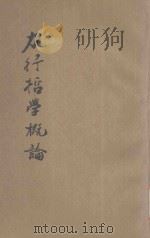 研狗
力行哲学概論
mtoou.info